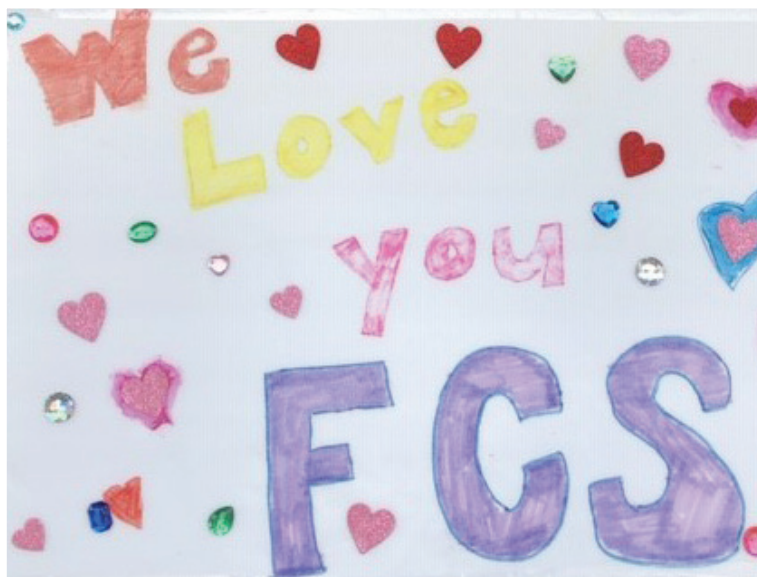 We
Love
you
FCS